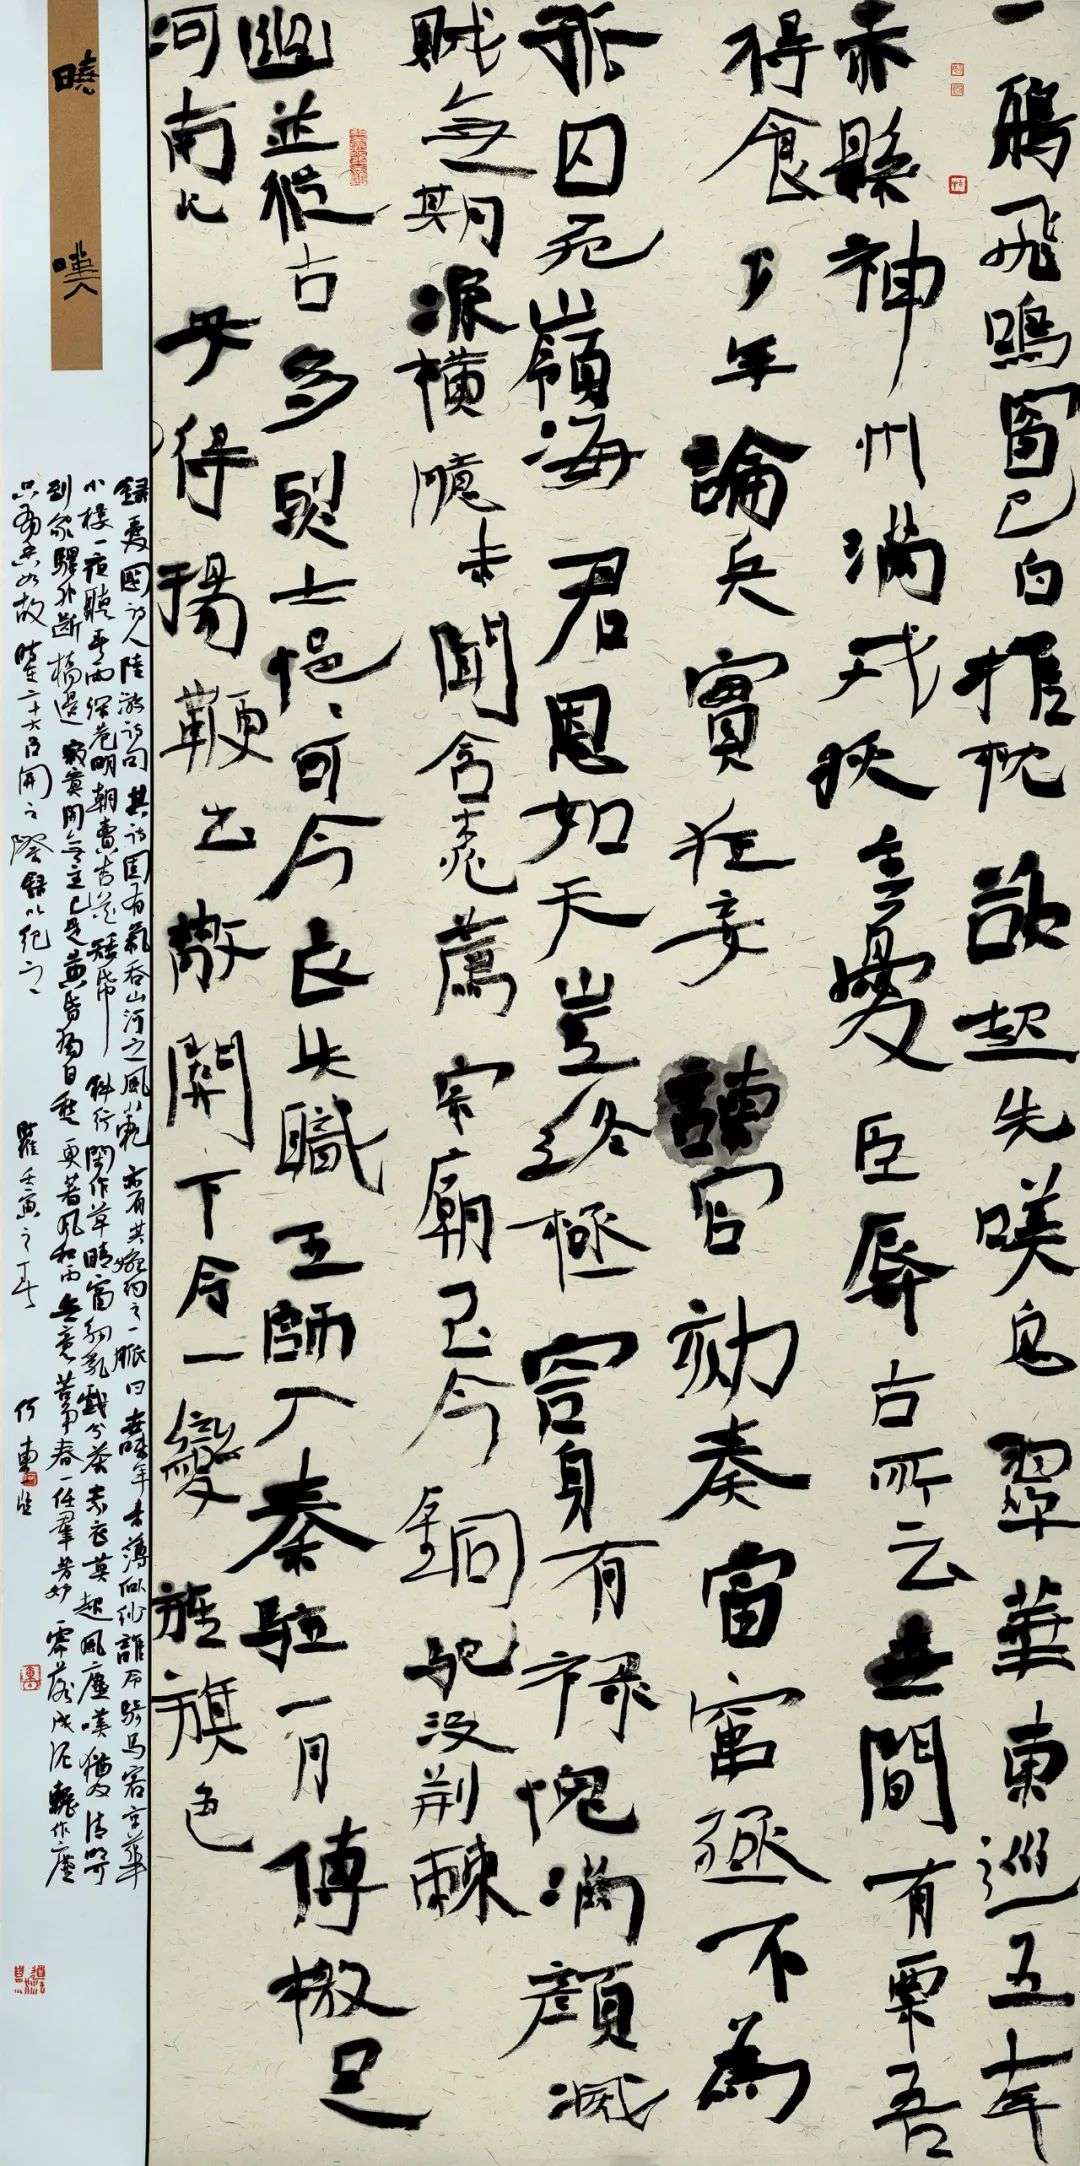 曉嘆
一鴉飛鳴窗已白推枕欲起先嘆息翠華東巡五十年
赤縣神州滿戎狄主憂臣辱古所云世間有粟吾
得食少年論兵實狂妄諫官劾奏當竄殛不為
孤囚死嶺海君恩如天豈終極容身有祿愧滿顏滅
賊無期淚橫臆未聞含桃薦宗廟至今銅駝沒荊棘
幽並從古多烈士悒悒可令長失職王師入秦駐一月傳檄足
河南北安得揚鞭出散關下令一變旌旗色
録愛國詩人陸游詩句其詩固有氣吞山河之風範亦有其婉約之一脈曰世味年來薄似紗誰令騎馬客京華
小樓一夜聽春雨深巷明朝賣杏花矮紙斜行閑作草晴窗細乳戲分茶素衣莫起風塵嘆猶及清明可
到家驛外斷橋邊寂寞開無主已是黃昏獨自愁更著風和雨無意苦爭春一任群芳妒零落成泥輾作塵
只有香如故時在二十大召開之際録以紀之歲壬寅之何東